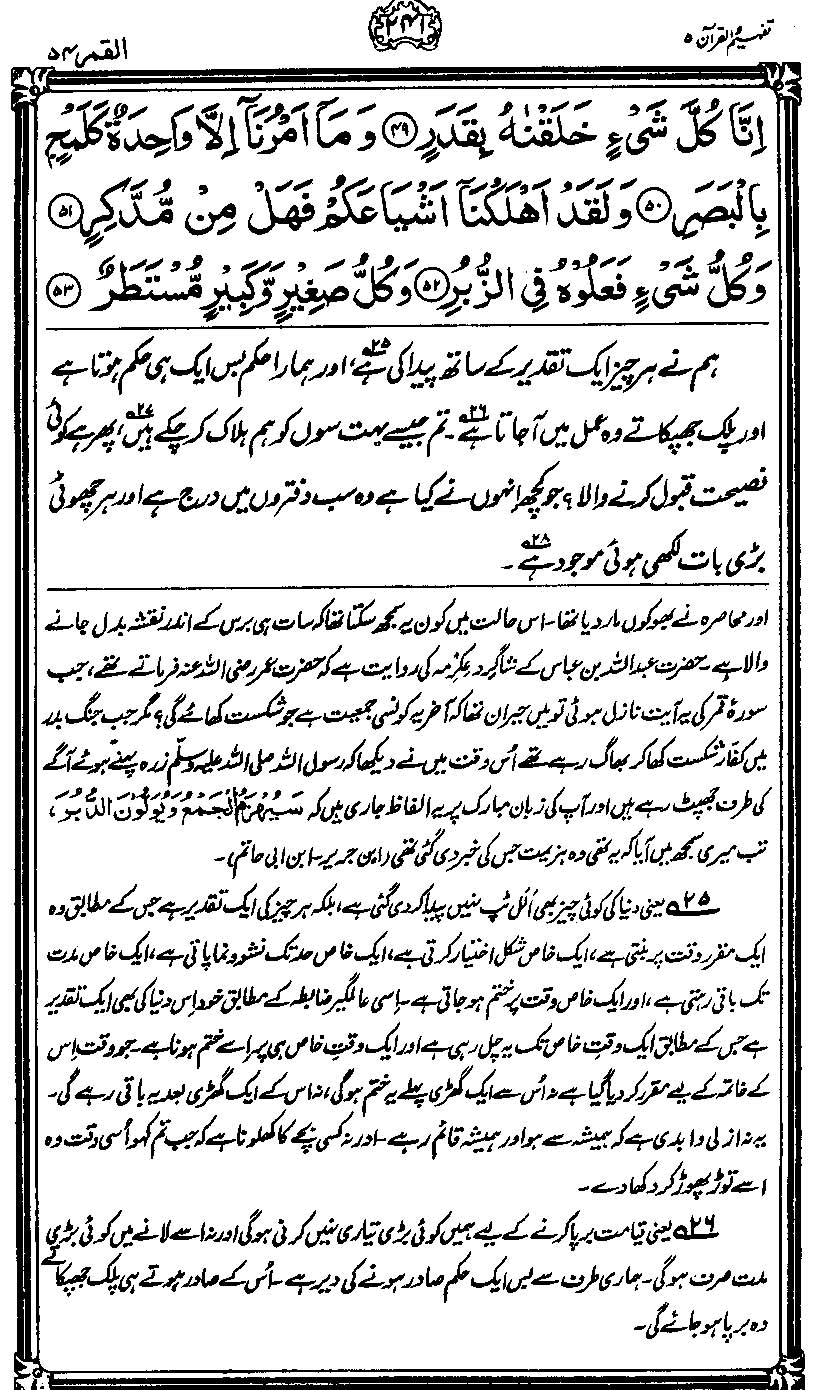 تفہیم القرآن ۵
۲۴۱
القمر ۵۴
اِنَّا كُلَّ شَیْءٍ خَلَقْنٰهُ بِقَدَرٍ ۴۹ وَ مَاۤ اَمْرُنَاۤ اِلَّا وَاحِدَةٌ كَلَمْحٍۭ
بِالْبَصَرِ ۵۰ وَ لَقَدْ اَهْلَكْنَاۤ اَشْیَاعَكُمْ فَهَلْ مِنْ مُّدَّكِرٍ ۵۱
وَ كُلُّ شَیْءٍ فَعَلُوْهُ فِی الزُّبُرِ ۵۲ وَ كُلُّ صَغِیْرٍ وَّ كَبِیْرٍ مُّسْتَطَرٌ ۵۳
ہم نے ہر چیز ایک تقدیر کے ساتھ پیدا کی ہے۲۵، اور ہمارا حکم بس ایک ہی حکم ہوتا ہے
اور پلک جھپکاتے وہ عمل میں آجاتا ہے۲۶۔ تم جیسے بہت سوں کو ہم ہلاک کر چکے ہیں۲۷، پھر ہے کوئی
نصیحت قبول کرنے والا؟ جو کچھ انہوں نے کیا ہے وہ سب دفتروں میں درج ہے اور ہر چھوٹی
بڑی بات لکھی ہوئی موجود ہے۲۸۔
اور محاصرہ نے بھوکوں مار دیا تھا۔ اس حالت میں کون یہ سمجھ سکتا تھا کہ سات ہی برس کے اندر نقشہ بدل جانے
والا ہے۔ حضرت عبداللہ بن عباس کے شاگرد عکرمہ کی روایت ہے کہ حضرت عمر رضی اللہ عنہ فرماتے تھے، جب
سورۂ قمر کی یہ آیت نازل ہوئی تو میں حیران تھا کہ آخر یہ کونسی جمعیت ہے جو شکست کھائے گی؟ مگر جب جنگ بدر
میں کفار شکست کھا کر بھاگ رہے تھے اُس وقت میں نے دیکھا کہ رسول اللہ صلی اللہ علیہ وسلم زرہ پہنے ہوئے آگے
کی طرف جھپٹ رہے ہیں اور آپ کی زبان مبارک پر یہ الفاظ جاری ہیں کہ سَیُهْزَمُ الْجَمْعُ وَیُوَلُّوْنَ الدُّبُرَ،
تب میری سمجھ میں آیا کہ یہ تھی وہ ہزیمت جس کی خبر دی گئی تھی (ابن جریر۔ ابن ابی حاتم)۔
۲۵ یعنی دنیا کی کوئی چیز بھی اَلَل ٹپ نہیں پیدا کر دی گئی ہے، بلکہ ہر چیز کی ایک تقدیر ہے جس کے مطابق وہ
ایک مقرر وقت پر بنتی ہے، ایک خاص شکل اختیار کرتی ہے، ایک خاص حد تک نشوونما پاتی ہے، ایک خاص مدت
تک باقی رہتی ہے، اور ایک خاص وقت پر ختم ہو جاتی ہے۔ اِسی عالمگیر ضابطہ کے مطابق خود اِس دنیا کی بھی ایک تقدیر
ہے جس کے مطابق ایک وقتِ خاص تک یہ چل رہی ہے اور ایک وقتِ خاص ہی پر اسے ختم ہونا ہے۔ جو وقت اِس
کے خاتمہ کے لیے مقرر کر دیا گیا ہے نہ اُس سے ایک گھڑی پہلے یہ ختم ہوگی، نہ اس کے ایک گھڑی بعد یہ باقی رہے گی۔
یہ نہ ازلی و ابدی ہے کہ ہمیشہ سے ہو اور ہمیشہ قائم رہے۔ اور نہ کسی بچے کا کھلونا ہے کہ جب تم کہو اُسی وقت وہ
اسے توڑ پھوڑ کر دکھا دے۔
۲۶ یعنی قیامت برپا کرنے کے لیے ہمیں کوئی بڑی تیاری نہیں کرنی ہوگی اور نہ اسے لانے میں کوئی بڑی
مدت صرف ہوگی۔ ہماری طرف سے بس ایک حکم صادر ہونے کی دیر ہے۔ اُس کے صادر ہوتے ہی پلک جھپکاتے
وہ برپا ہو جائے گی۔